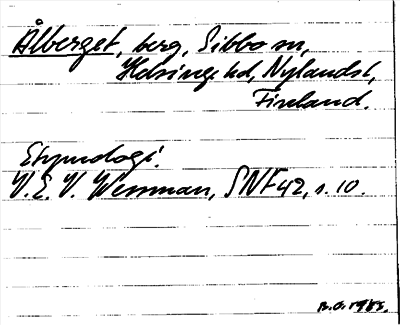 Ålberget, berg, Sibbo sn,
Helsinge hd, Nylands l,
Finland.
Etymologi.
V. E. V. Wessman, SNF 42, s. 10.
B.O. 1983.